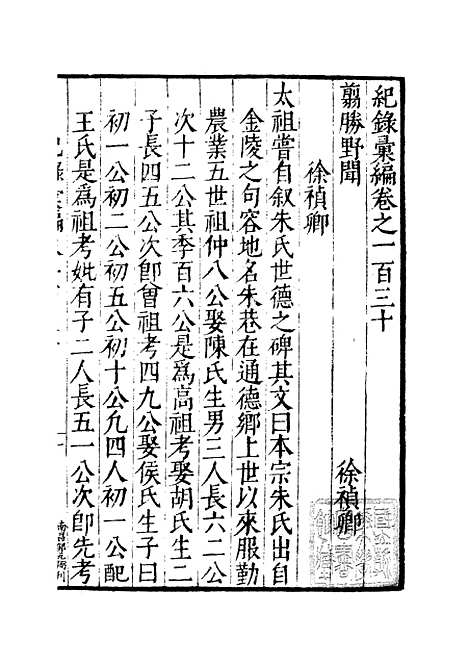 紀錄彙編卷之一百三十
翦勝野聞 徐禎卿
徐禎卿
太祖嘗自叙朱氏世德之碑其文曰本宗朱氏出自
金陵之句容地名朱巷在通德鄉上世以來服勤
農業五世祖仲八公娶陳氏生男三人長六二公
次十二公其季百六公是爲高祖考娶胡氏生二
子長四五公次卽曾祖考四九公娶侯氏生子曰
初一公初二公初五公初十公凢四人初一公配
王氏是爲祖考妣有子二人長五一公次卽先考